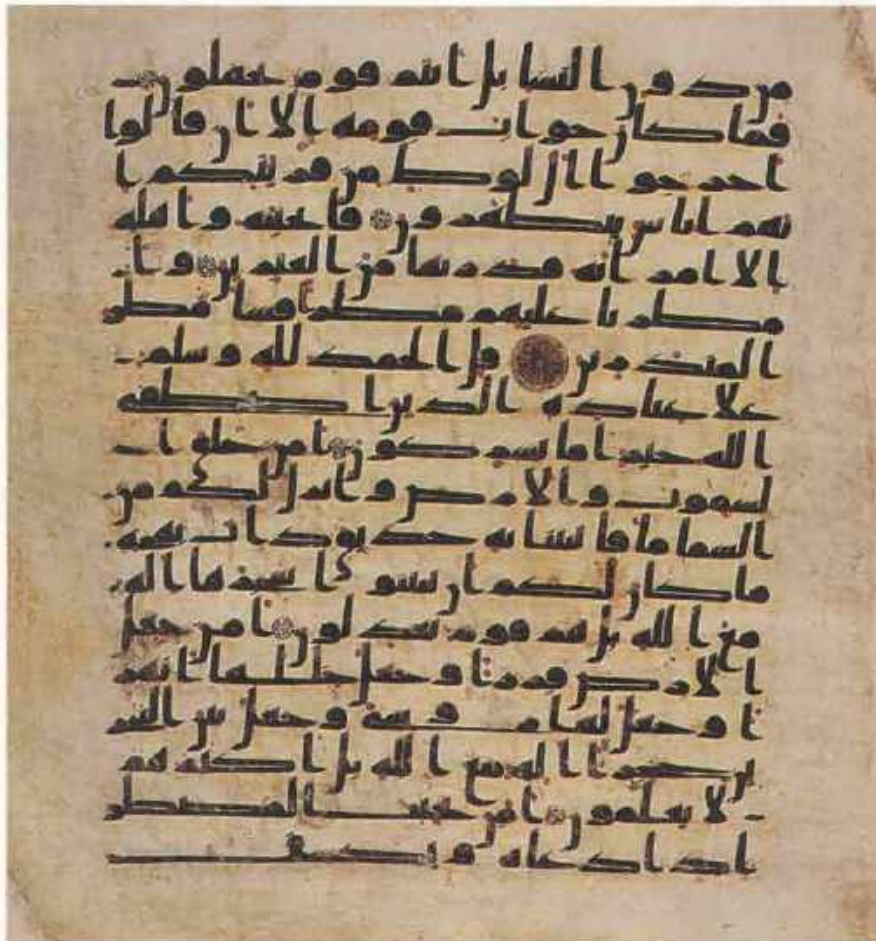 من دون النسا بل انتم قوم تجهلون
فما كان جواب قومه الا ان قالوا
اخرجوا ال لوط من قريتكم ا
نهم اناس يتطهرون فانجينه واهله
الا امراته قدرنها من الغبرين وا
مطرنا عليهم مطرا فسا مطر
المنذرين قل الحمد لله وسلم
على عباده الذين اصطفى
الله خير اما يشركون امن خلق ا
لسموت والارض وانزل لكم من
السما ما فانبتنا به حدئق ذات بهجه
ما كان لكم ان تنبتوا شجرها اله
مع الله بل هم قوم يعدلون امن جعل
الارض قرارا وجعل خللها انهر
ا وجعل لها روسي وجعل بين البحر
ين حاجزا اله مع الله بل اكثرهم
لا يعلمون امن يجيب المضطر
اذا دعاه ويكشف